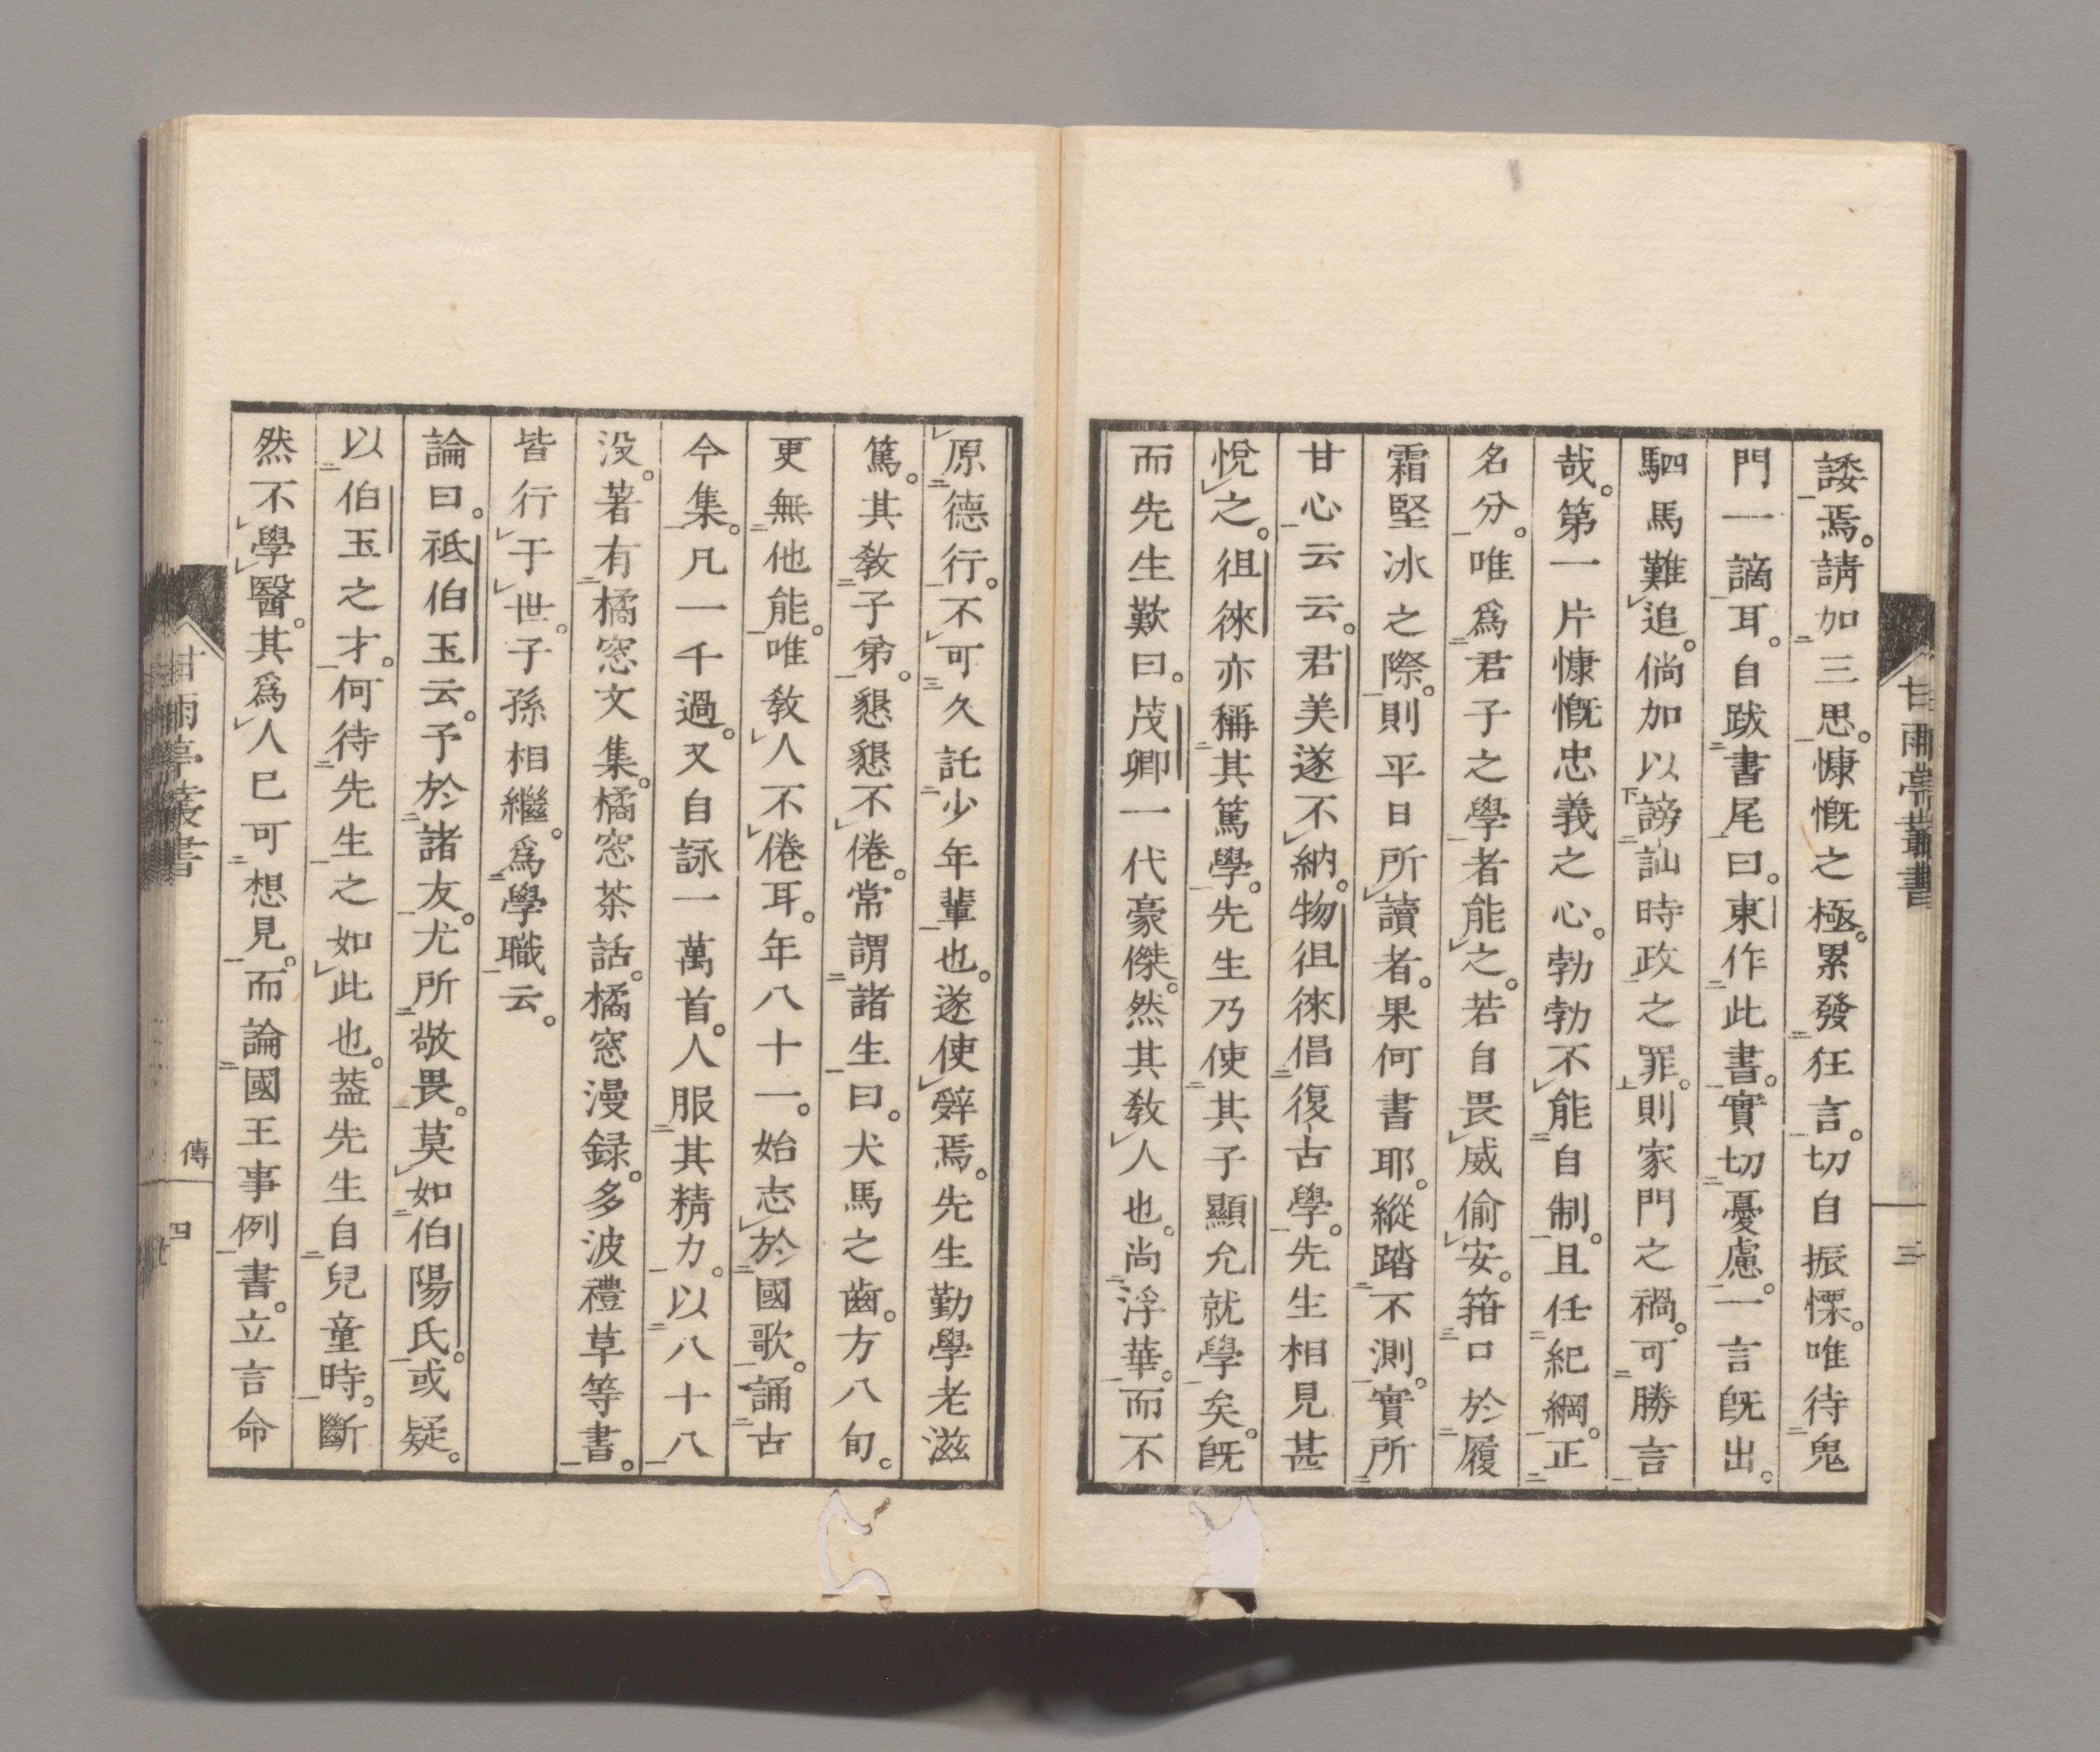 諉焉。請加三思。慷慨之極。累發狂言。切自振慄。唯待鬼
門一謫耳。自跋書尾曰。東作此書。實切憂慮。一言既出。
駟馬難追。倘加以謗訕時政之罪。則家門之禍。可勝言
哉。第一片慷慨忠義之心。勃勃不能自制。且任紀綱。正
名分。唯爲君子之學者能之。若自畏威偷安。箝口於履
霜堅冰之際。則平日所讀者。果何書耶。縱踏不測。實所
甘心云云。君美遂不納。物徂徠倡復古學。先生相見甚
悅之。徂徠亦稱其篤學。先生乃使其子顯允就學矣。既
而先生歎曰。茂卿一代豪傑。然其教人也。尚浮華。而不
甘雨亭叢書
三
原德行。不可久託少年輩也。遂使辭焉。先生勤學老滋
篤。其教子弟。懇懇不倦。常謂諸生曰。犬馬之齒。方八旬。
更無他能。唯教人不倦耳。年八十一。始志於國歌。誦古
今集。凡一千過。又自詠一萬首。人服其精力。以八十八
没。著有橘窓文集。橘窓茶話。橘窓漫録。多波禮草等書。
皆行于世。子孫相繼。爲學職云。
論曰。祗伯玉云。予於諸友。尤所敬畏。莫如伯陽氏。或疑。
以伯玉之才。何待先生之如此也。葢先生自兒童時。斷
然不學醫。其爲人已可想見。而論國王事例書。立言命
甘雨亭叢書
傳
四